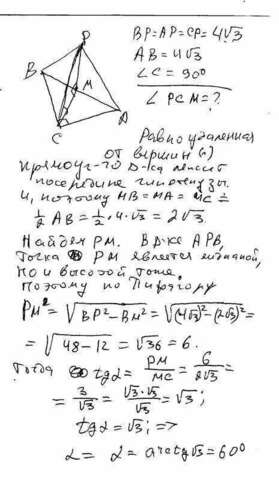 P
B
M
C
A
BP=AP=CP=4√3
AB=4√3
∠C=90°
∠PCM=?
Равноудаленная
от вершин (.)
прямоуг-го Δ-ка лежит
посередине гипотенузы.
И, поэтому MB=MA=MC=
1/2 AB=1/2·4·√3=2√3.
Найдем PM. В Δ-ке APB,
точка M PM является медианой,
но и высотой тоже.
Поэтому по Пифагору
PM²=√BP²-BM²=√(4√3)²-(2√3)²=
=√48-12=√36=6.
Тогда tgα=PM/MC=6/2√3=
=3/√3=√3·√3/√3=√3;
tgα=√3; =>
α= α=arctg√3=60°